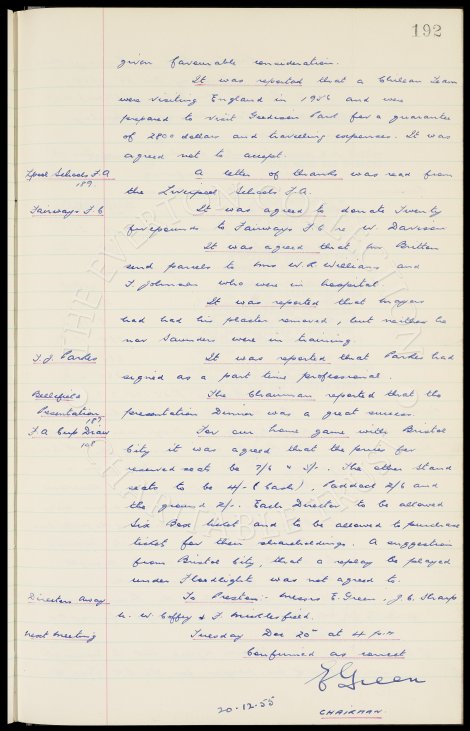 192
given favourable consideration.
It was reported that a Chilean Team
were visiting England in 1956 and were
prepared to visit Goodison Park for a guarantee
of 2800 dollars and travelling expenses. It was
agreed not to accept.
Lpool Schools F.A. A letter of thanks was read from
189
the Liverpool Schools F.A.
Fairways F.C It was agreed to donate Twenty
fivepounds to Fairways F.C re W. Davison
It was agreed that Mr Britton
send parcels to Mrs W.R. Williams and
T. Johnson who were in hospital
It was reported that Mayers
had had his plaster removed, but neither he
nor Saunders were in training.
T.J. Parkes It was reported that Parkes had
signed as a part time professional.
Bellefield The Chairman reported that the
Presentation presentation Dinner was a great success.
187
F.A. Cup Draw For our home game with Bristol
198
City it was agreed that the prices for
reserved seats be 7/6 & 5/-. The other stand
seats to be 4/- (Cash), Paddock 2/6 and
the ground 2/-. Each Director to be allowed
Six Box ticket and to be allowed to purchase
ticket for their shareholdings. A suggestion
from Bristol City, that a replay be played
under Floodlight was not agreed to.
Directors Away To Preston - Messrs E. Green, J.C. Sharp
W Coffey & F. Micklesfield.
Next Meeting Tuesday Dec 20th at 4 p.m
Confirmed as correct
E Green
20-12-55
CHAIRMAN.
THE EVERTON COLLECTION